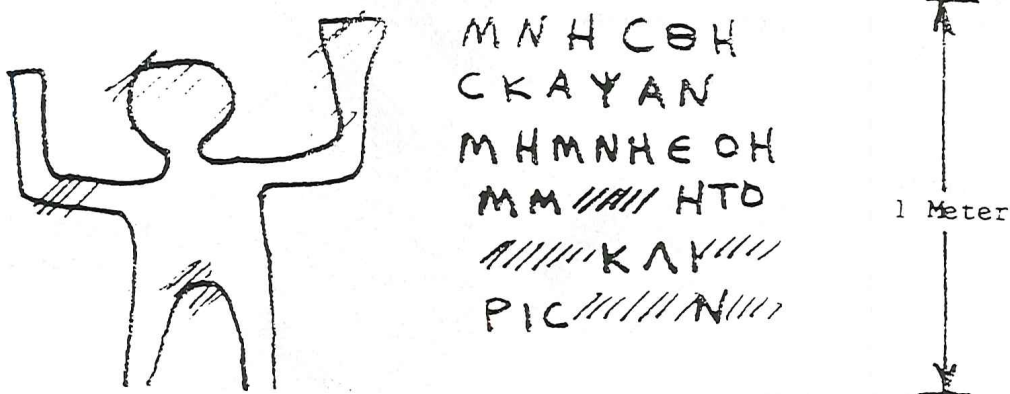 ΜΝΗCΘΗ
CΚΑΨΑΝ
ΜΗΜΝΗЄΟΗ
ΜΜ ΗΤΟ
ΚΛΥ
ΡΙC Ν
1 Meter